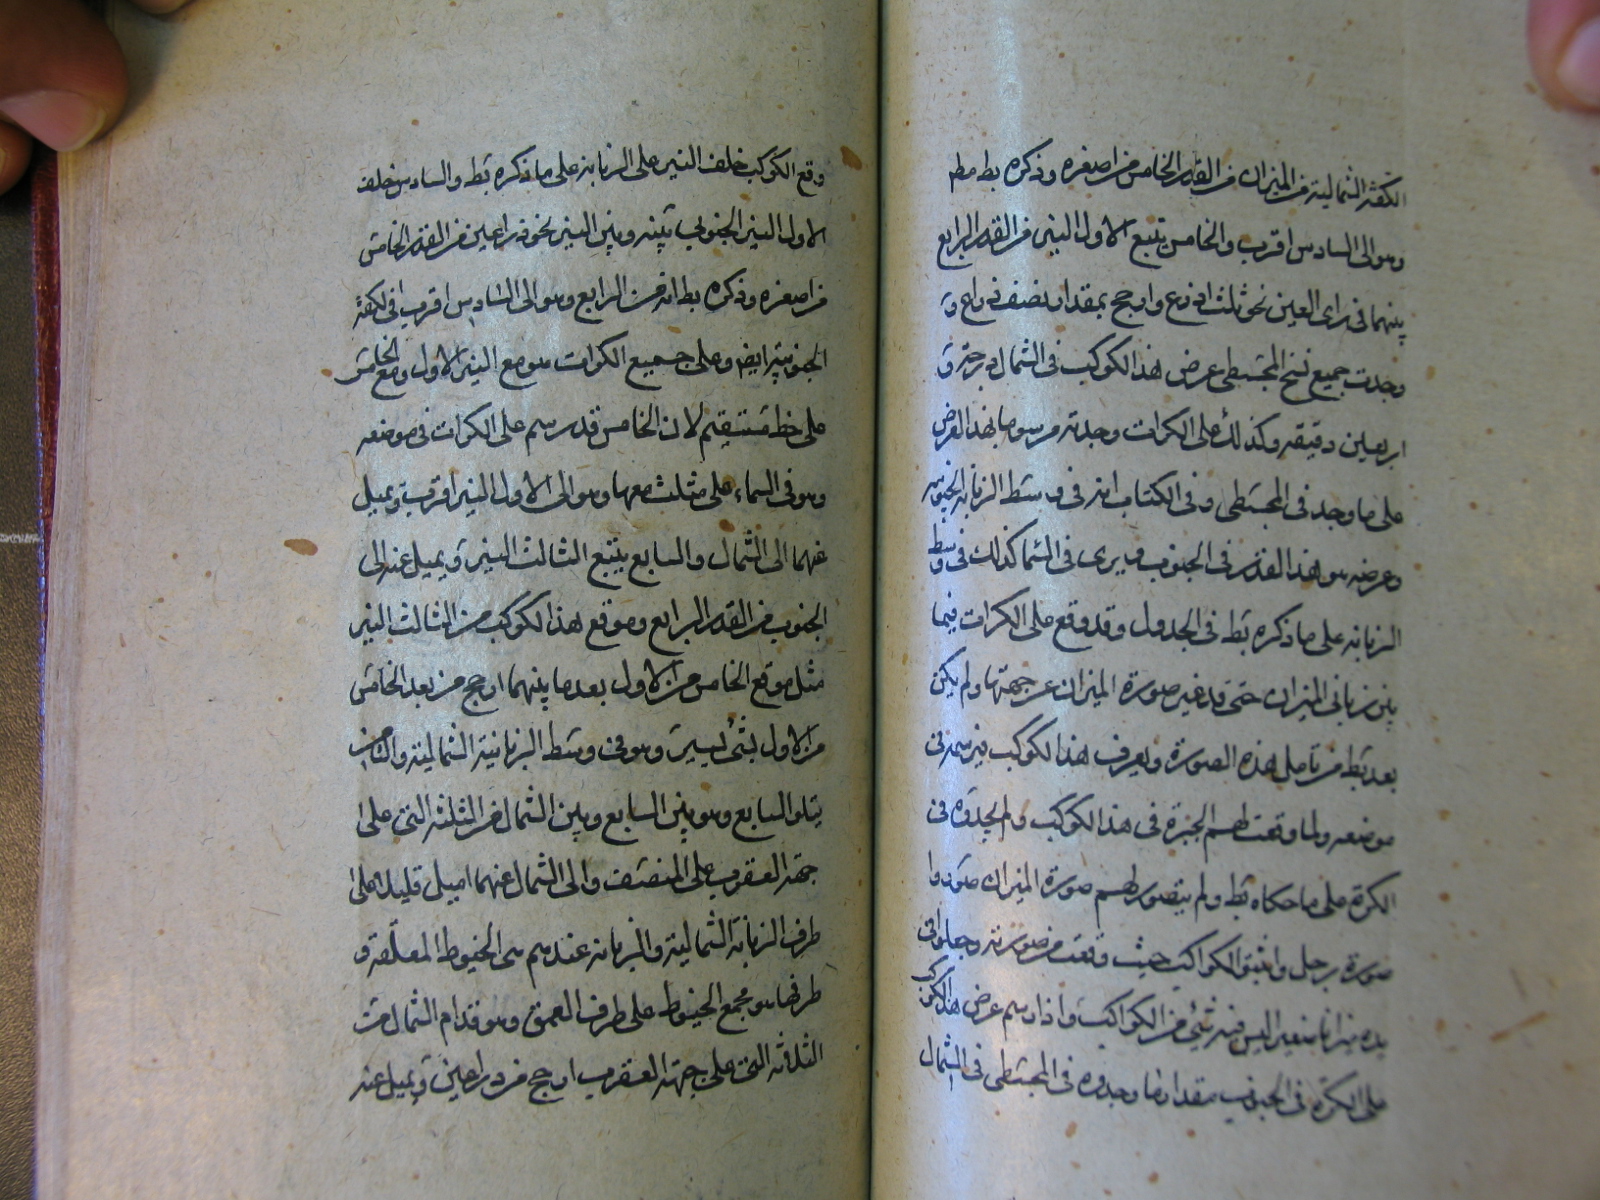 الكفة الشمالية من الميزان من القدر الخامس من اصغره وذكره بط مطم
وهو الى السادس اقرب والخامس يتبع الاول النير من القدر الرابع
بينهما فى راى العين نحو ثلث ذراع وارجح بمقدار نصف ذراع و
وجدت جميع نسخ المجسطى عرض هذا الكوكب فى الشمال درجة و
اربعين دقيقه وكذلك على الكرات وجدته مرسوما بهذا العرض
على ما وجد فى المجسطى وفى الكتاب انه فى وسط الزبانه الجنوبيه
وعرضه هو هذا القدر فى الجنوب ويرى فى السما كذلك فى وسط
الزبانه على ما ذكره بط فى الجدول وقد وقع على الكرات فيما
بين زبانى الميزان حتى قد غير صورة الميزان عن جهتها ولم يكن
بعد بط من تامل هذه الصورة ويعرف هذا الكوكب فيرسمه فى
موضعه ولما وقعت لهم الحيرة فى هذا الكوكب ولم يجدوه فى
الكرة على ما حكاه بط ولم يتصور لهم صورة الميزان صوروا
صورة رجل واثبتوا الكواكب حيث وقعت من صورته وجعلوا فى
يده ميزانا صغيرا ليس فيه شئ من الكواكب واذا رسم عرض هذا الكوكب
على الكرة فى الجنوب بمقدار ما وجدوه فى المجسطى فى الشمال
وقع الكوكب خلف النير على الزبانه على ما ذكره بط والسادس خلف
الاول النير الجنوبى بينه وبين النير نحو ذراعين من القدر الخامس
من اصغره وذكره بط انه من الرابع وهو الى السادس اقرب فى الكفة
الجنوبية ايضا وعلى جميع الكرات موضع النير الاول ومع الخامس
على خط مستقيم لان الخامس قد رسم على الكرات فى موضعه
وهو فى السماء على مثلث معها وهو الى الاول النير اقرب ويميل
عنهما الى الشمال والسابع يتبع الثالث النير ويميل عنه الى
الجنوب من القدر الرابع وموقع هذا الكوكب من الثالث النير
مثل موقع الخامس من الاول بعد ما بينهما ارجح من بعد الخامس
من الاول بشئ يسير وهو فى وسط الزبانية الشمالية والثامن
يتلو السابع وهو بين السابع وبين الشمال من الثلثة التى على
جهة العقرب على المنتصف والى الشمال عنهما اميل قليلا على
طرف الزبانة الشمالية والزبانه عندهم هى الخيوط المعلقة و
طرفها هو مجمع الخيوط على طرف العمق وهو قدام الشمال من
الثلاثه التى على جهة العقرب ارجح من ذراعين ويميل عنه